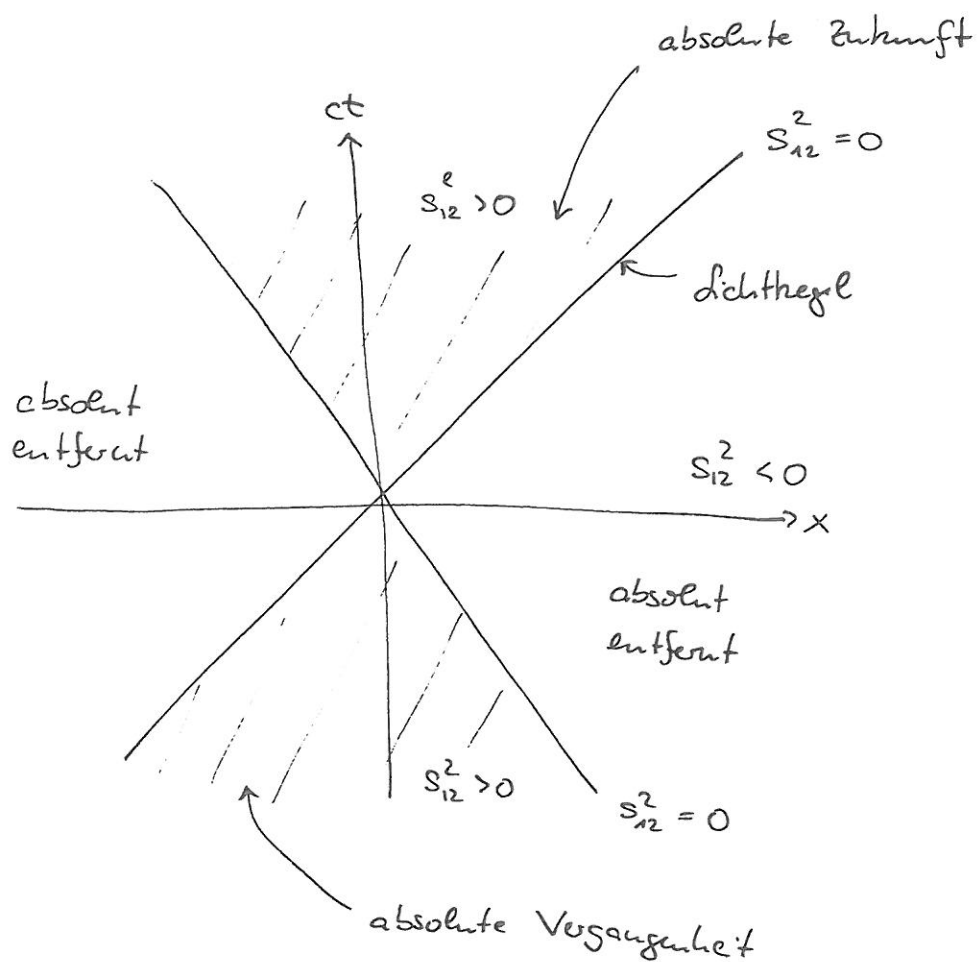 absolute Zukunft
ct
S₁₂² = 0
S₁₂² > 0
Lichtkegel
absolut
entfernt
S₁₂² < 0
x
absolut
entfernt
S₁₂² > 0
S₁₂² = 0
absolute Vergangenheit